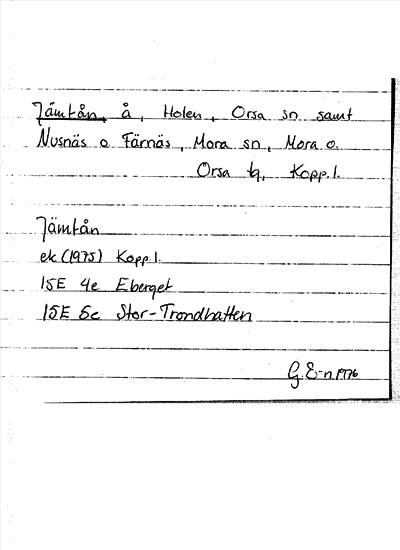 Jämtån, å, Holen, Orsa sn samt
Nusnäs o Färnäs, Mora sn, Mora o.
Orsa tg, Kopp. l.
Jämtån
ek (1975) Kopp. l.
15E 4e Eberget
15E 5c Stor-Trondhatten
G. E-n 1976